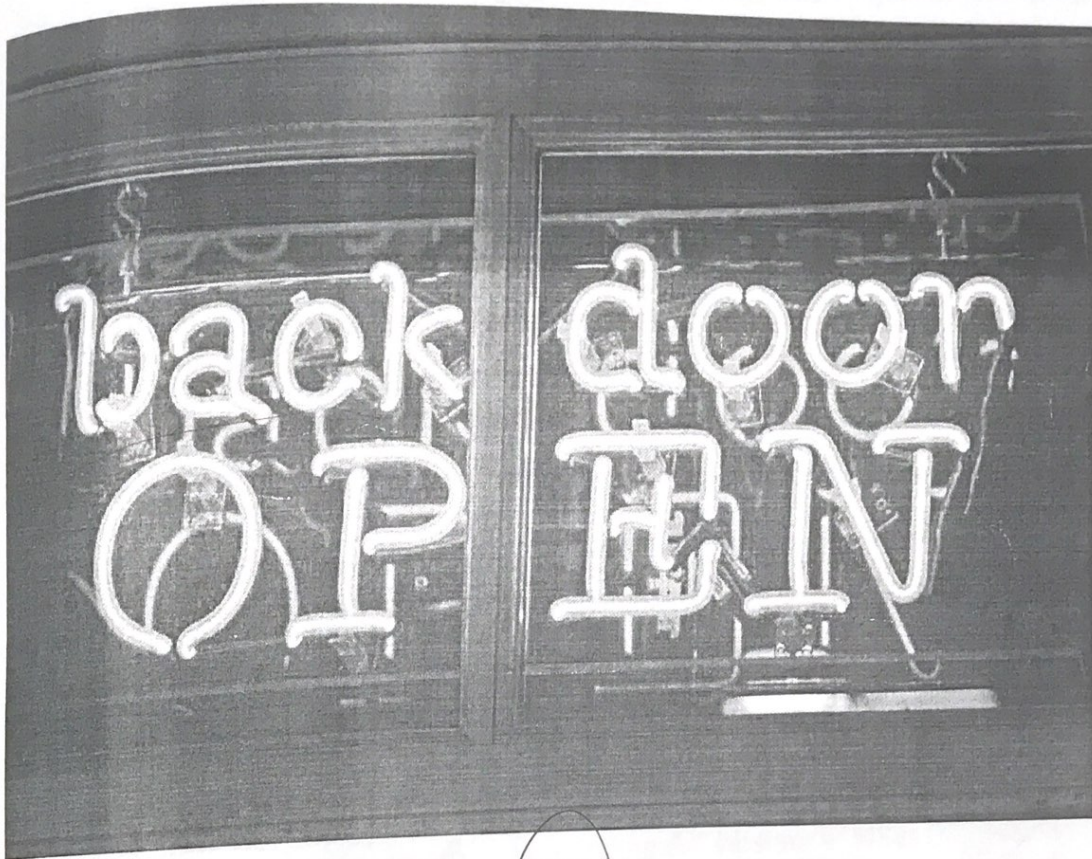 back door
OPEN